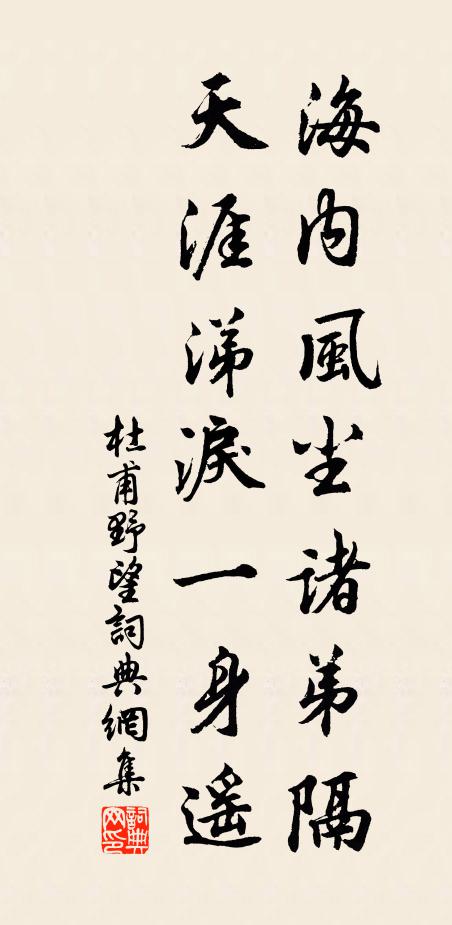 海内風尘諸弟隔
天涯涕淚一身遥
杜甫野望詞典網集
詞典网印